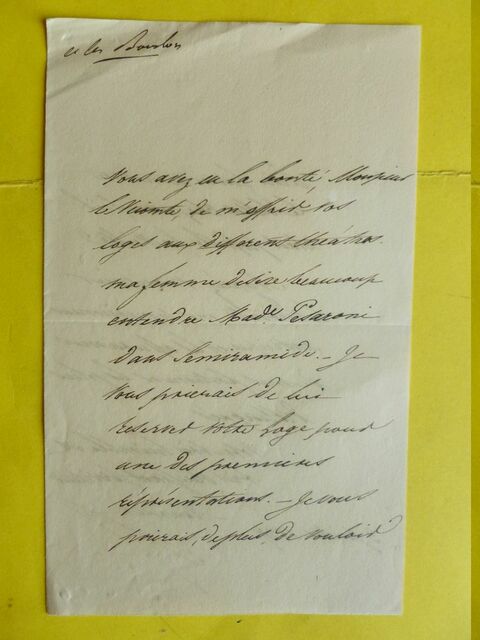 et les Bourbons
Vous avez eu la bonté, Monsieur
le Vicomte, de m'offrir vos
loges aux different théatres.
ma femme desire beaucoup
entendre Made. Pesaroni
dans Semiramide. – Je
vous prierais de lui
reserver votre loge pour
une des premieres
répresentations. – Je vous
prierais, de plus, de vouloir